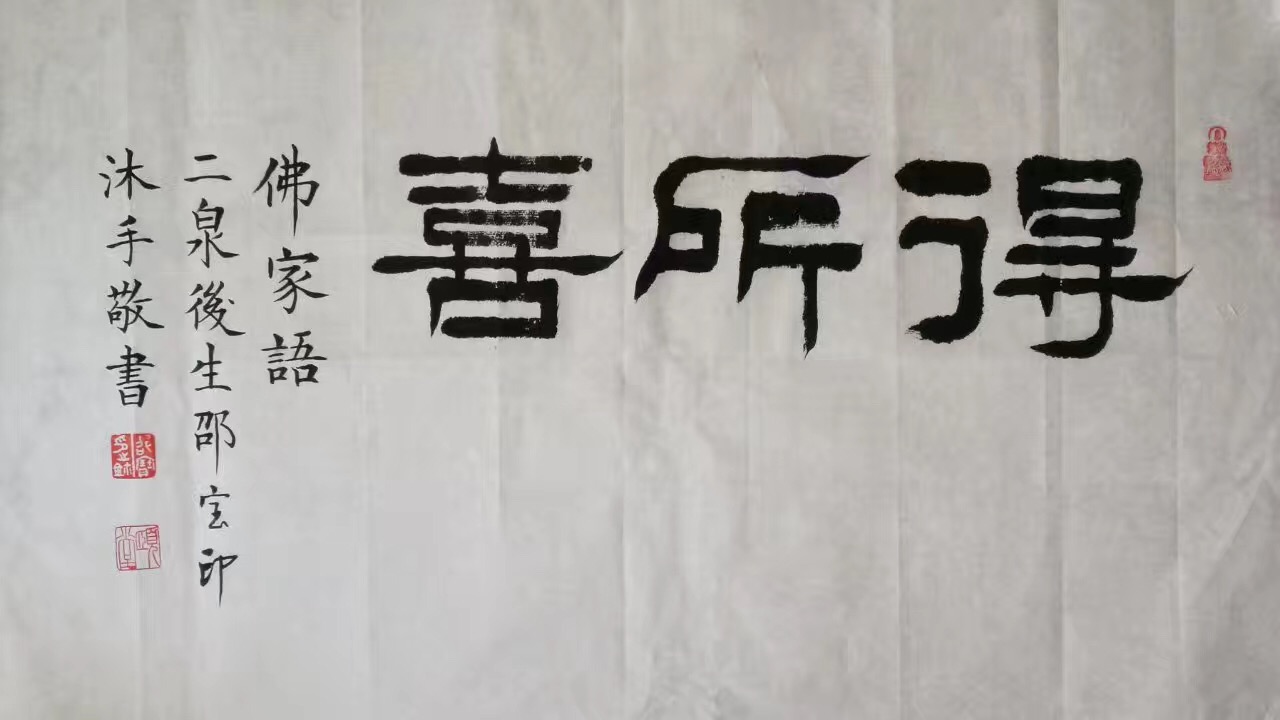 得所喜
佛家語
二泉後生邵宝印
沐手敬書